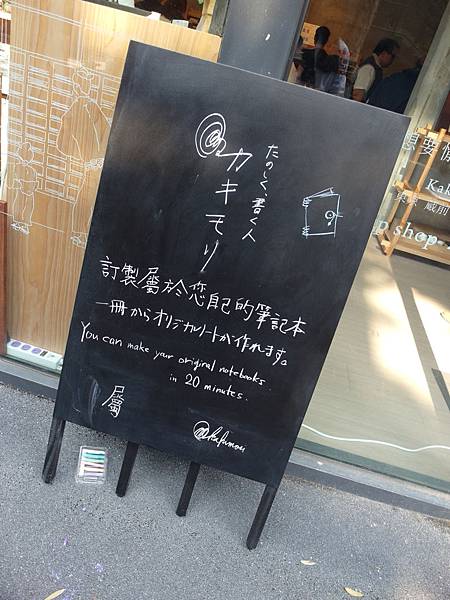 たのしく、書く人
カキモリ
訂製屬於您自己的筆記本
一冊からオリジナルノートが作れます。
You can make your original notebooks
in 20 minutes.
屬
@kakimori
想要慢
Kak
東京 蔵前
p shop